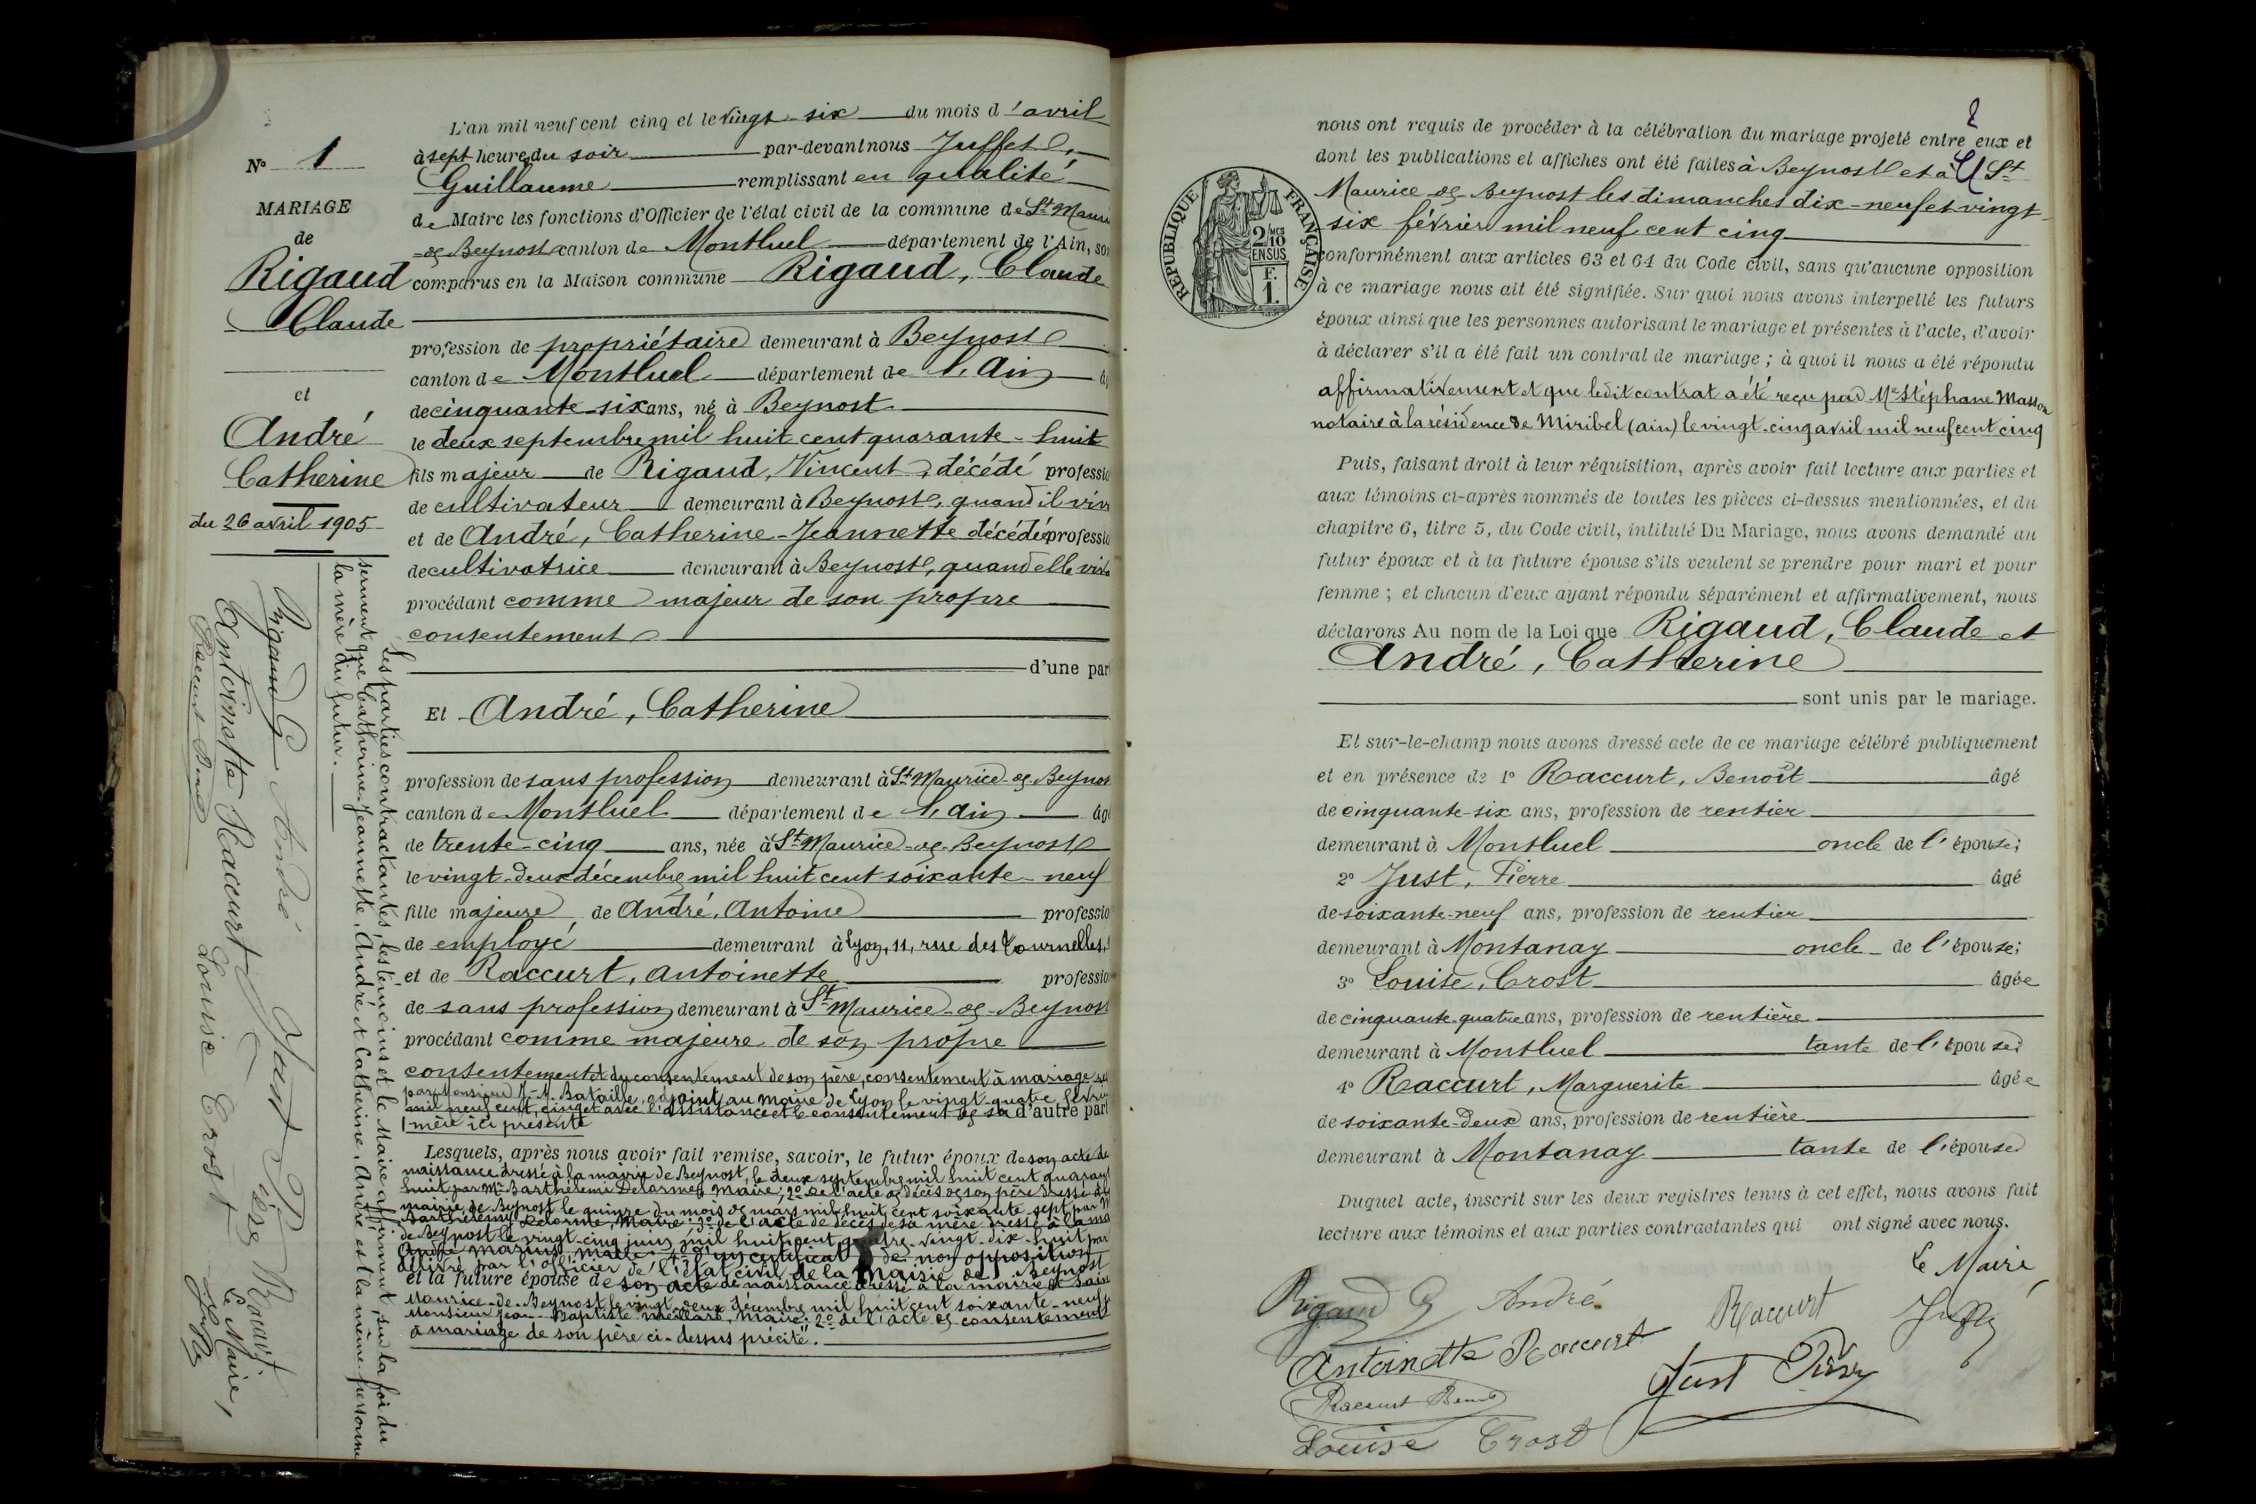 N° 1
MARIAGE
de
Rigaud
Claude
et
André
Catherine
du 26 avril 1905
L'an mil neuf cent cinq et le vingt-six du mois d'avril
à sept heures du soir par-devant nous Juffet,
Guillaume remplissant en qualité
de Maire les fonctions d'Officier de l'état civil de la commune de St Mauri
-de Beynost canton de Montluel département de l'Ain, son
comparus en la Maison commune Rigaud, Claude
profession de propriétaire demeurant à Beynost
canton de Montluel département de l'Ain âg
de cinquante-six ans, né à Beynost
le deux septembre mil huit cent quarante-huit
fils majeur de Rigaud, Vincent, décédé professio
de cultivateur demeurant à Beynost, quand il viv
et de André, Catherine-Jeannette décédée professio
de cultivatrice demeurant à Beynost, quand elle viva
procédant comme majeur de son propre
consentement
d'une par
Et André, Catherine
profession de sans profession demeurant à St Maurice-de-Beynos
canton de Montluel département de l'Ain âg
de trente-cinq ans, née à St Maurice-de-Beynost
le vingt-deux décembre mil huit cent soixante-neuf
fille majeure de André, Antoine professio
de employé demeurant à Lyon, 11, rue des Tournelles,
et de Raccurt, Antoinette professio
de sans profession demeurant à St Maurice-de-Beynost
procédant comme majeure de son propre
consentement et du consentement de son père, consentement à mariage
par Monsieur J.-M. Bataille, adjoint au maire de Lyon le vingt-quatre févri
mil neuf cent cinq et avec l'assistance et le consentement de sa d'autre part
mère ici présente
Lesquels, après nous avoir fait remise, savoir, le futur époux de son acte de
naissance dressé à la mairie de Beynost, le deux septembre mil huit cent quarant
huit par Mr Barthélemi Delorme, Maire; 2° de l'acte de décès de son père dressé à la
mairie de Beynost le quinze du mois de mars mil huit cent soixante-sept par M
Barthélemy Delorme, Maire; 3° de l'acte de décès de sa mère dressé à la ma
de Beynost le vingt-cinq juin mil huit cent quatre-vingt-dix-huit par
André Marius Maire; 4° d'un certificat de non opposition
délivré par l'officier de l'état civil de la Mairie de Beynost
et la future épouse de son acte de naissance dressé à la mairie de Saint
Maurice-de-Beynost le vingt-deux décembre mil huit cent soixante-neuf
Monsieur Jean-Baptiste Maire; 2° de l'acte de consentement
à mariage de son père ci-dessus précité.
Les parties contractantes, les témoins et le Maire affirment, sur la foi du
serment que Catherine-Jeannette, André et Catherine, André est la même personne
la mère du futur.
Rigaud C André Just Pière Racurt
Antoinette Raccurt Louise Crost Le Maire,
Raccurt Benoit Juffet
2
RÉPUBLIQUE FRANÇAISE
2/10 MES
EN SUS
F.
1.
nous ont requis de procéder à la célébration du mariage projeté entre eux et
dont les publications et affiches ont été faites à Beynost et à St
Maurice-de-Beynost les dimanches dix-neuf et vingt-
six février mil neuf cent cinq
conformément aux articles 63 et 64 du Code civil, sans qu'aucune opposition
à ce mariage nous ait été signifiée. Sur quoi nous avons interpellé les futurs
époux ainsi que les personnes autorisant le mariage et présentes à l'acte, d'avoir
à déclarer s'il a été fait un contrat de mariage ; à quoi il nous a été répondu
affirmativement et que ledit contrat a été reçu par Me Stéphane Masson
notaire à la résidence de Miribel (ain) le vingt-cinq avril mil neuf cent cinq
Puis, faisant droit à leur réquisition, après avoir fait lecture aux parties et
aux témoins ci-après nommés de toutes les pièces ci-dessus mentionnées, et du
chapitre 6, titre 5, du Code civil, intitulé Du Mariage, nous avons demandé au
futur époux et à la future épouse s'ils veulent se prendre pour mari et pour
femme ; et chacun d'eux ayant répondu séparément et affirmativement, nous
déclarons Au nom de la Loi que Rigaud, Claude et
André, Catherine
sont unis par le mariage.
Et sur-le-champ nous avons dressé acte de ce mariage célébré publiquement
et en présence de 1° Raccurt, Benoît âgé
de cinquante-six ans, profession de rentier
demeurant à Montluel oncle de l'épouse;
2° Just, Pierre âgé
de soixante-neuf ans, profession de rentier
demeurant à Montanay oncle de l'épouse;
3° Louise, Crost âgée
de cinquante-quatre ans, profession de rentière
demeurant à Montluel tante de l'épouse;
4° Raccurt, Marguerite âgée
de soixante-deux ans, profession de rentière
demeurant à Montanay tante de l'épouse
Duquel acte, inscrit sur les deux registres tenus à cet effet, nous avons fait
lecture aux témoins et aux parties contractantes qui ont signé avec nous.
Le Maire
Rigaud C André Racurt Juffet
Antoinette Raccurt Just Pière
Raccurt Benoit
Louise Crost